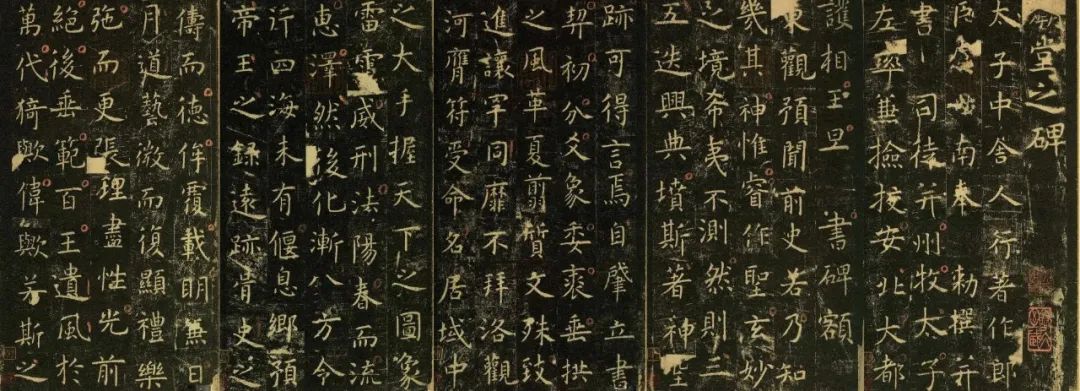 堂之碑
太子中舍人行著作郎
臣南奉勅撰并
書司徒并州牧太子
左率兼撿挍安北大都
護相王旦書碑額
東觀預聞前史若乃知
幾其神惟睿作聖玄妙
之境希夷不測然則三
五迭興典墳斯著神聖
跡可得言焉自肇立書
契初分爻象委裘垂拱
之風革夏翦質文殊致
進讓罕同靡不拜洛觀
河膺符受命名居域中
之大手握天下之圖象
雷電威刑法陽春而流
惠澤然後化漸八方令
行四海未有偃息鄉預
帝王之錄遠跡胥史之
儔而德侔覆載明無日
月道藝微而復顯禮樂
弛而更張理盡性光前
絕後垂範百王遺風於
萬代猗歟偉歟若斯之